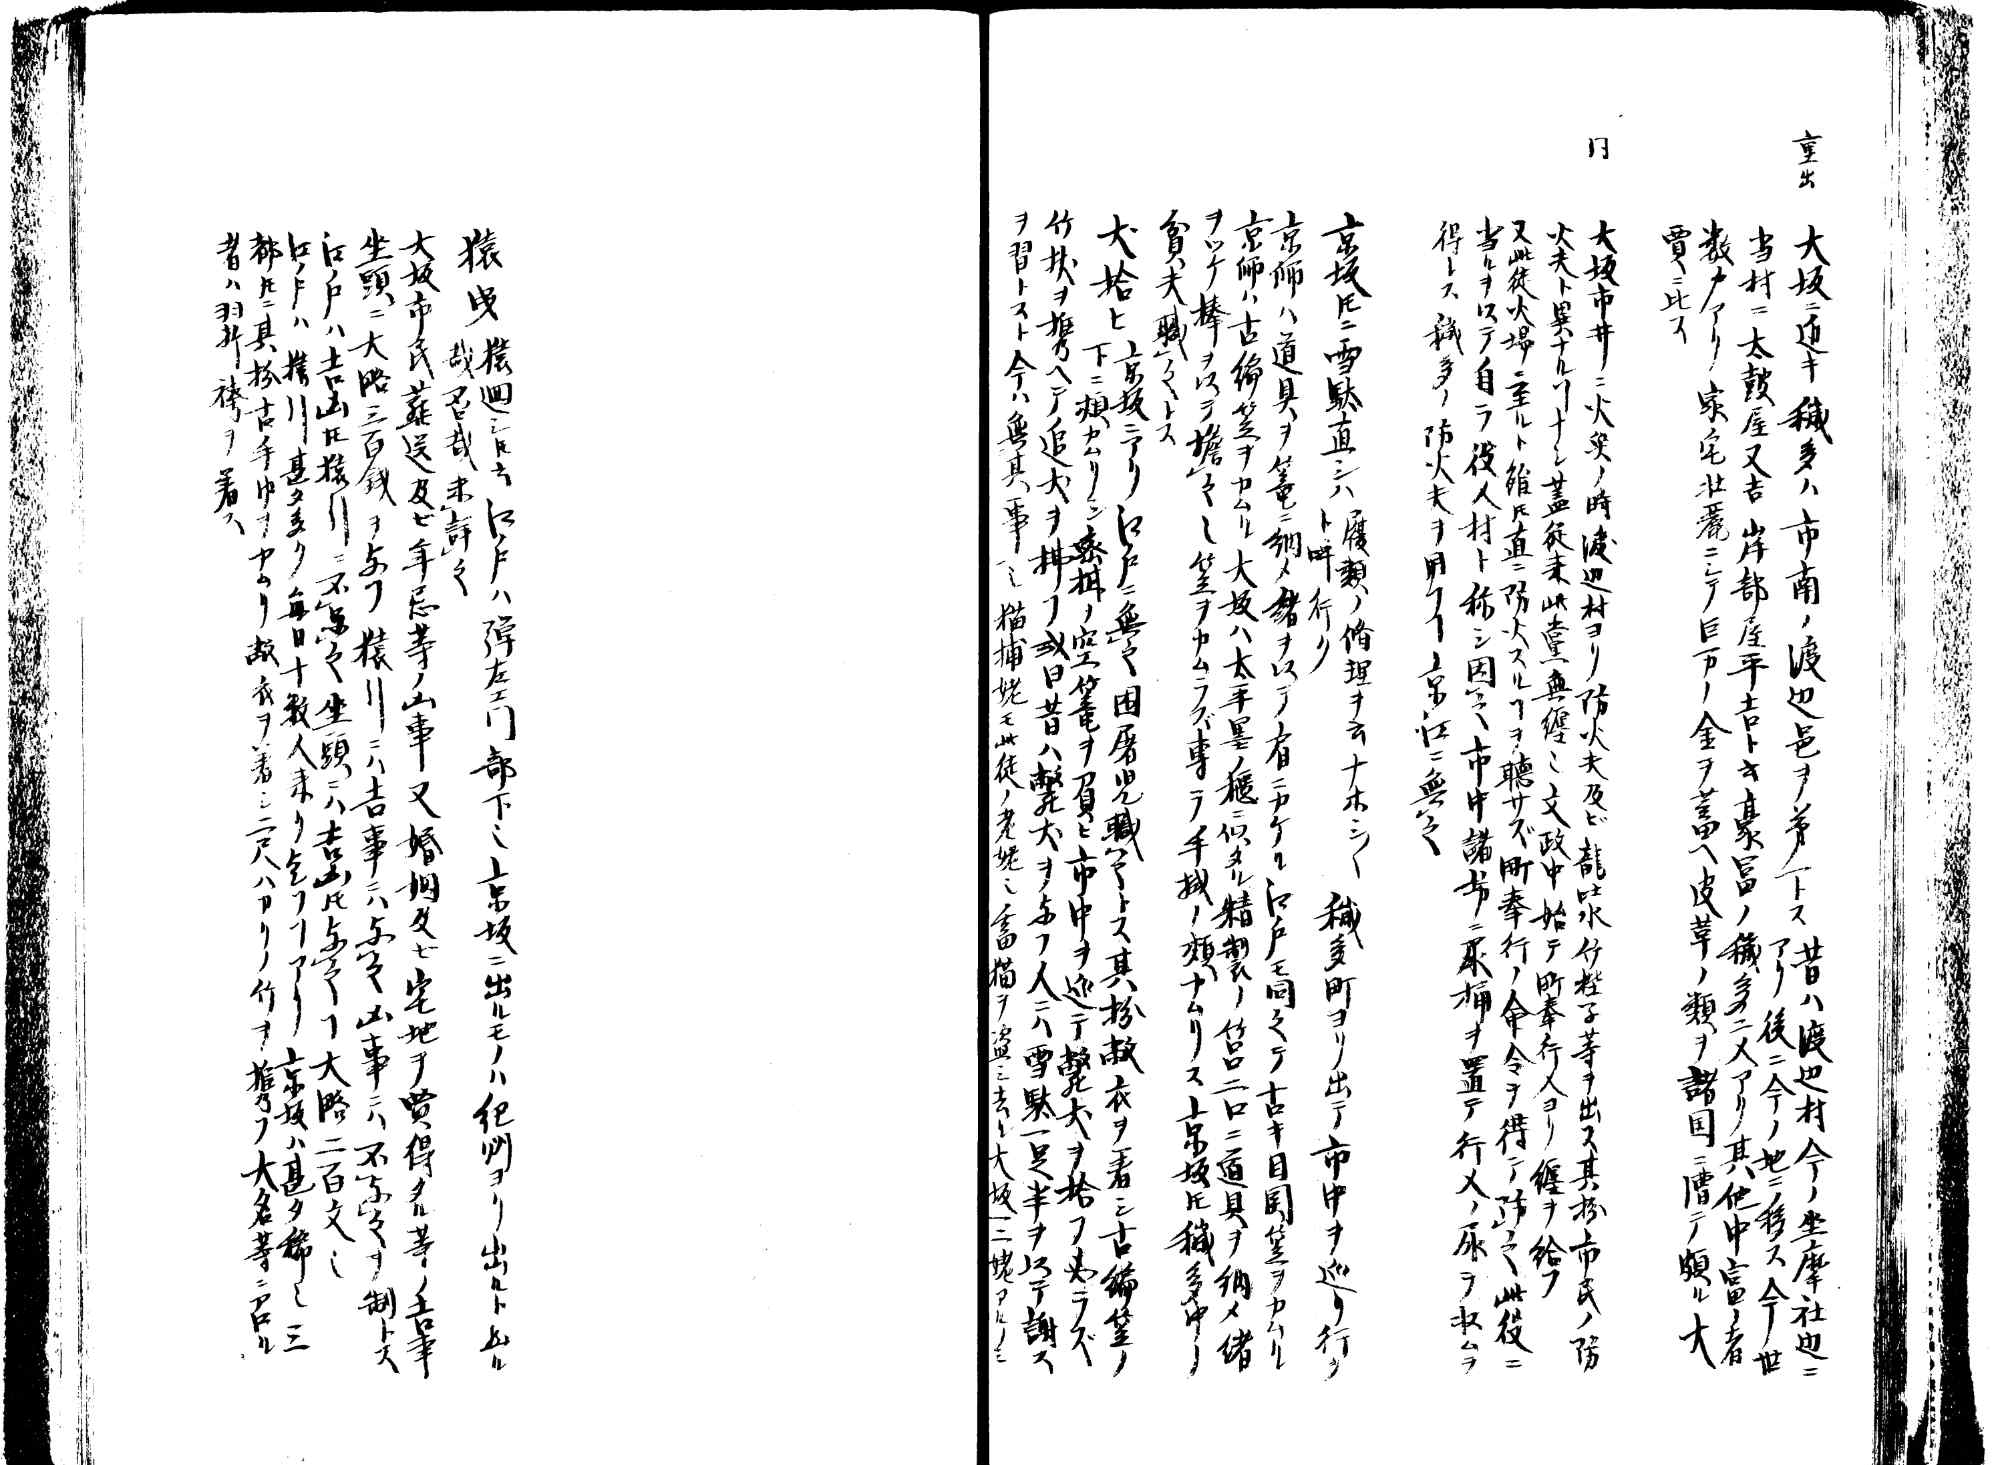 重出
大坂ニ近キ穢多ハ市南ノ渡辺邑ヲ第一トス 昔ハ渡辺村今ノ坐摩社辺ニ
アリ後ニ今ノ地ニ移ス今世
当村ニ太鼓屋又吉岸部屋平吉ト云豪富ノ穢多二人アリ其他中富ノ者
数戸アリ家宅壮麗ニシテ巨万ノ金ヲ蓄ヘ皮革ノ類ヲ諸国ニ漕テ頗ル大
賈ニ比ス
同
大坂市井ニ火災ノ時渡辺村ヨリ防火夫及ビ龍吐水竹梯子等ヲ出ス其扮市民ノ防
火夫ト異ナルコトナシ蓋従来此党無纏也文政中始テ町奉行人ヨリ纏ヲ給フ
又此徒火場ニ至ルト雖ドモ直ニ防火スルコトヲ聴サズ町奉行ノ命令ヲ得テ防之此役ニ
当ルヲ以テ自ラ役人村ト称シ因之市中諸坊ニ尿桶ヲ置テ行人ノ尿ヲ収ムヲ
得トス穢多ノ防火夫ヲ用フコト京江ニ無之
京坂トモニ雪駄直シハ 履類ノ脩理ヲ云ナホシ〱
ト呼行ク
穢多町ヨリ出テ市中ヲ巡リ行ク
京師ハ道具ヲ篭ニ納メ緒ヲ以テ肩ニカケル江戸モ同之テ古キ目関笠ヲカムル
京師ハ古編笠ヲカムル大坂ハ太平墨ノ櫃ニ似タル精製ノ筥二口ニ道具ヲ納メ緒
ヲツケ棒ヲ以テ擔之也笠ヲカムラズ専ラ手拭ノ類カムリス京坂トモ穢多中ノ
貧夫職之トス
犬拾ヒ京坂ニアリ江戸ニ無之因屠児職之トス其扮敝衣ヲ着シ古編笠ノ
下ニ頬カムリシ
竹杖ヲ携ヘテ追犬ヲ拂フ或日昔ハ斃犬ヲ与フ人ニハ雪駄一足半ヲ以テ謝ス
ヲ習トスト今ハ無其事也 猫捕姥モ此徒ノ老姥也畜猫ヲ盗ミ去ル大坂一二姥アルノミ
猿曳 猿廻シトモ云江戸ハ弾左エ門部下也京坂ニ出ルモノハ紀州ヨリ出ルト
哉否哉未詳之
大坂市民葬送及ビ年忌等ノ凶事又婚姻及ビ宅地ヲ買得タル等ノ吉事
坐頭ニ大略三百銭ヲ与フ猿引ニハ吉事ニハ与之凶事ニハ不与之ヲ制トス
江戸ハ吉凶トモ猿引ニ不与之坐頭ニハ吉凶トモ与之コト大略二百文也
江戸ハ猿引甚多ク毎日十数人来リ乞フコトアリ京坂ハ甚タ稀也三
都トモニ其扮古手巾ヲカムリ敝衣ヲ着シ二尺ハカリノ竹ヲ携フ大名等ニ召ル
者ハ羽折袴ヲ着ス